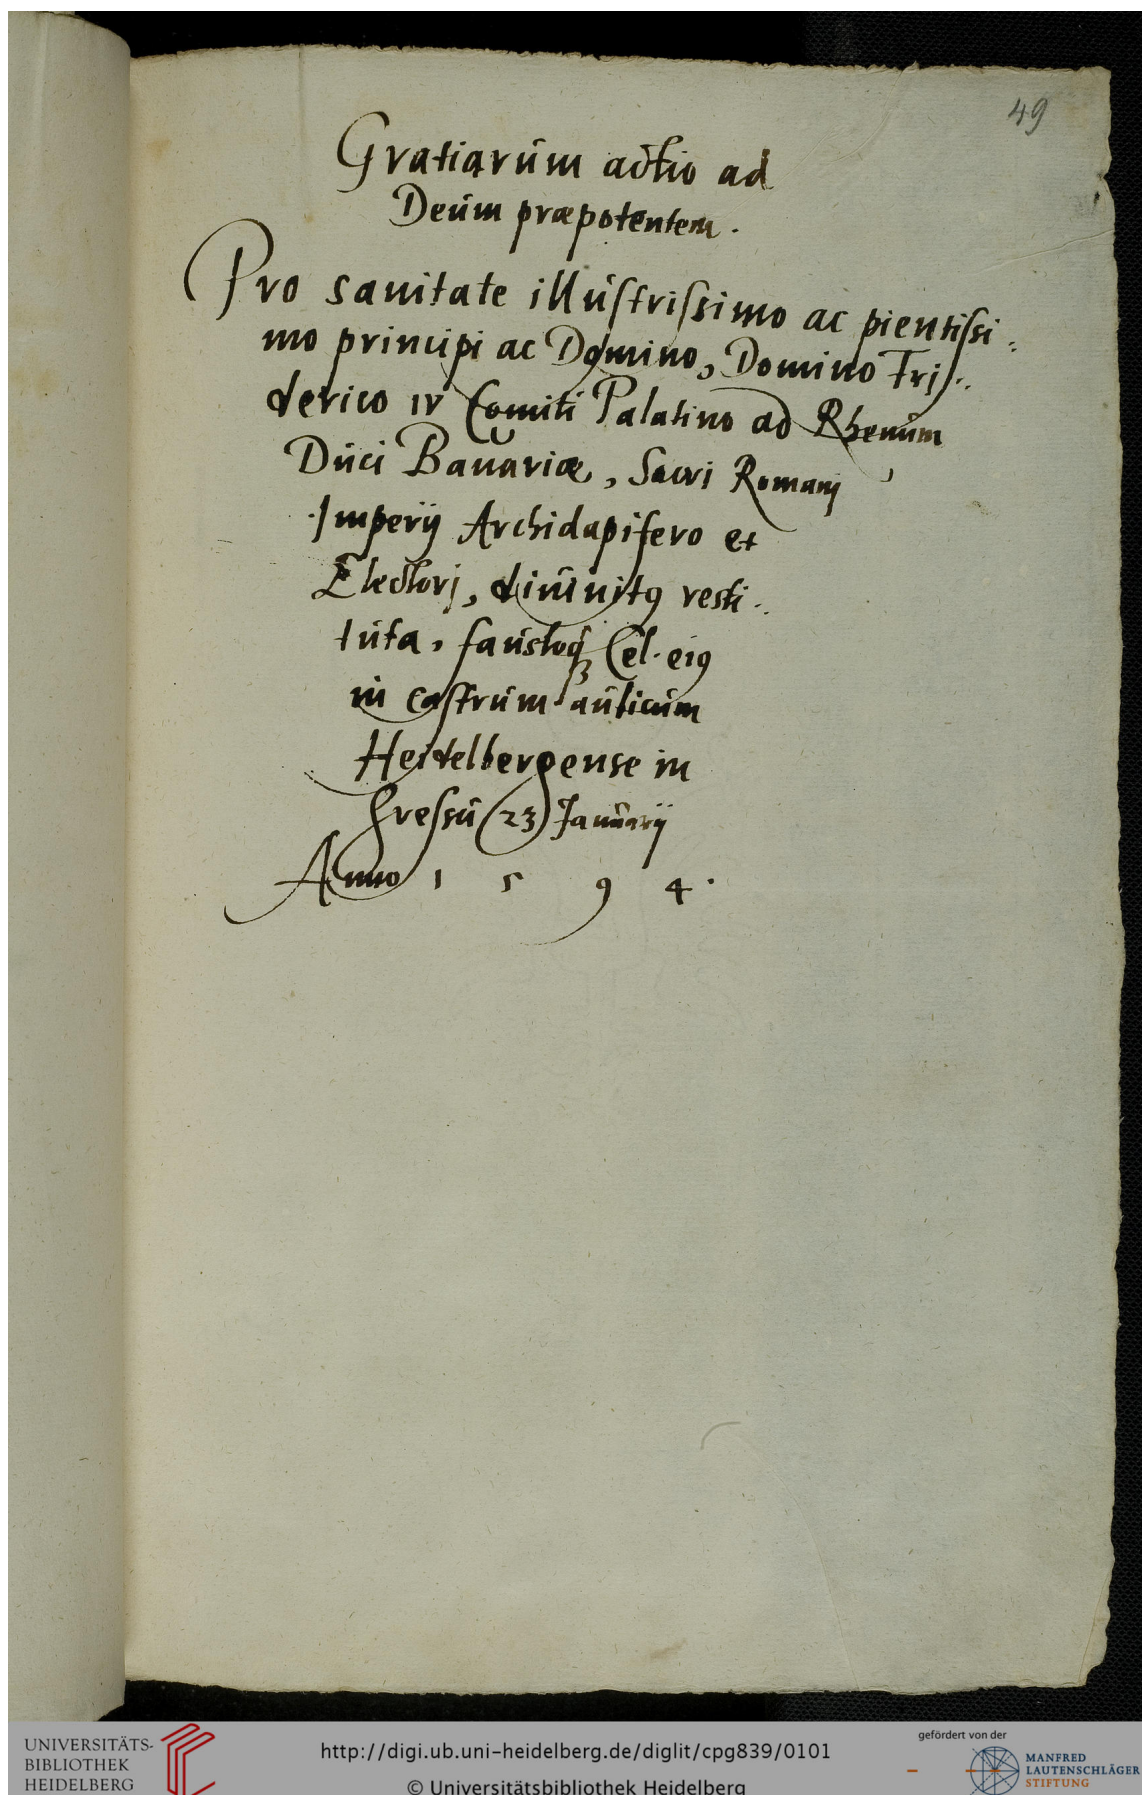 49
Gratiarum actio ad
Deum præpotentem.
Pro sanitate illustrissimo ac pientissi:
mo principi ac Domino, Domino Fri:
derico IV Comiti Palatino ad Rhenum,
Duci Bavariæ, Sacri Romanj
Imperij Archidapifero et
Electorj, divinitꝰ resti:
tuta, faustoqꝫ Cel. eiꝰ
in castrum aulicum
Heidelbergense in
gressu (23) Januarij
Anno 1 5 9 4.
UNIVERSITÄTS-
BIBLIOTHEK
HEIDELBERG
http://digi.ub.uni-heidelberg.de/diglit/cpg839/0101
© Universitätsbibliothek Heidelberg
gefördert von der
MANFRED
LAUTENSCHLÄGER
STIFTUNG